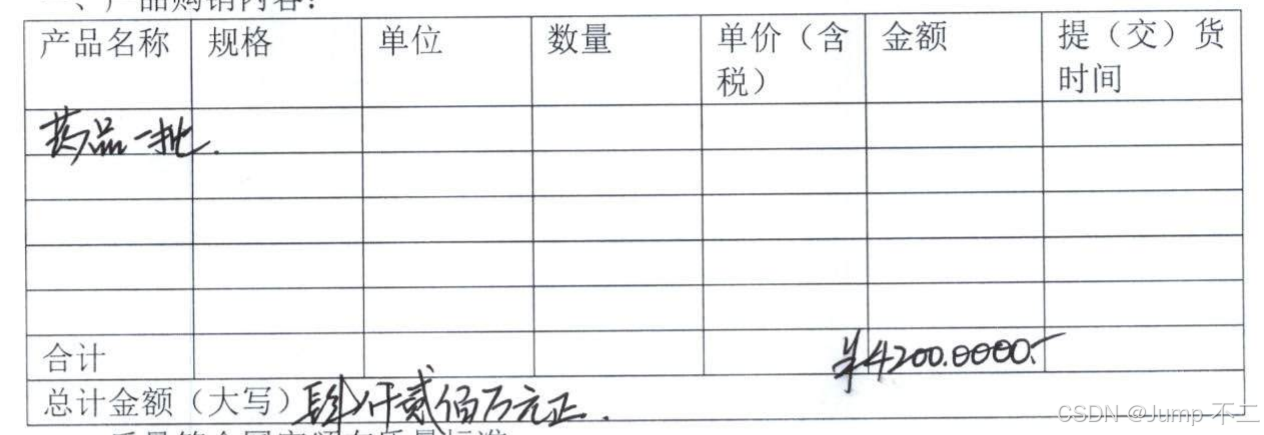 一、产品购销内容：
产品名称 规格 单位 数量 单价（含税） 金额 提（交）货时间
药品一批.
合计 ¥4200.0000.-
总计金额（大写）肆仟贰佰万元正.
CSDN @Jump 不二